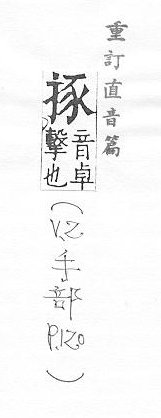 重訂直音篇
㧻
音卓
擊也
(V.2
手部
P.120
)